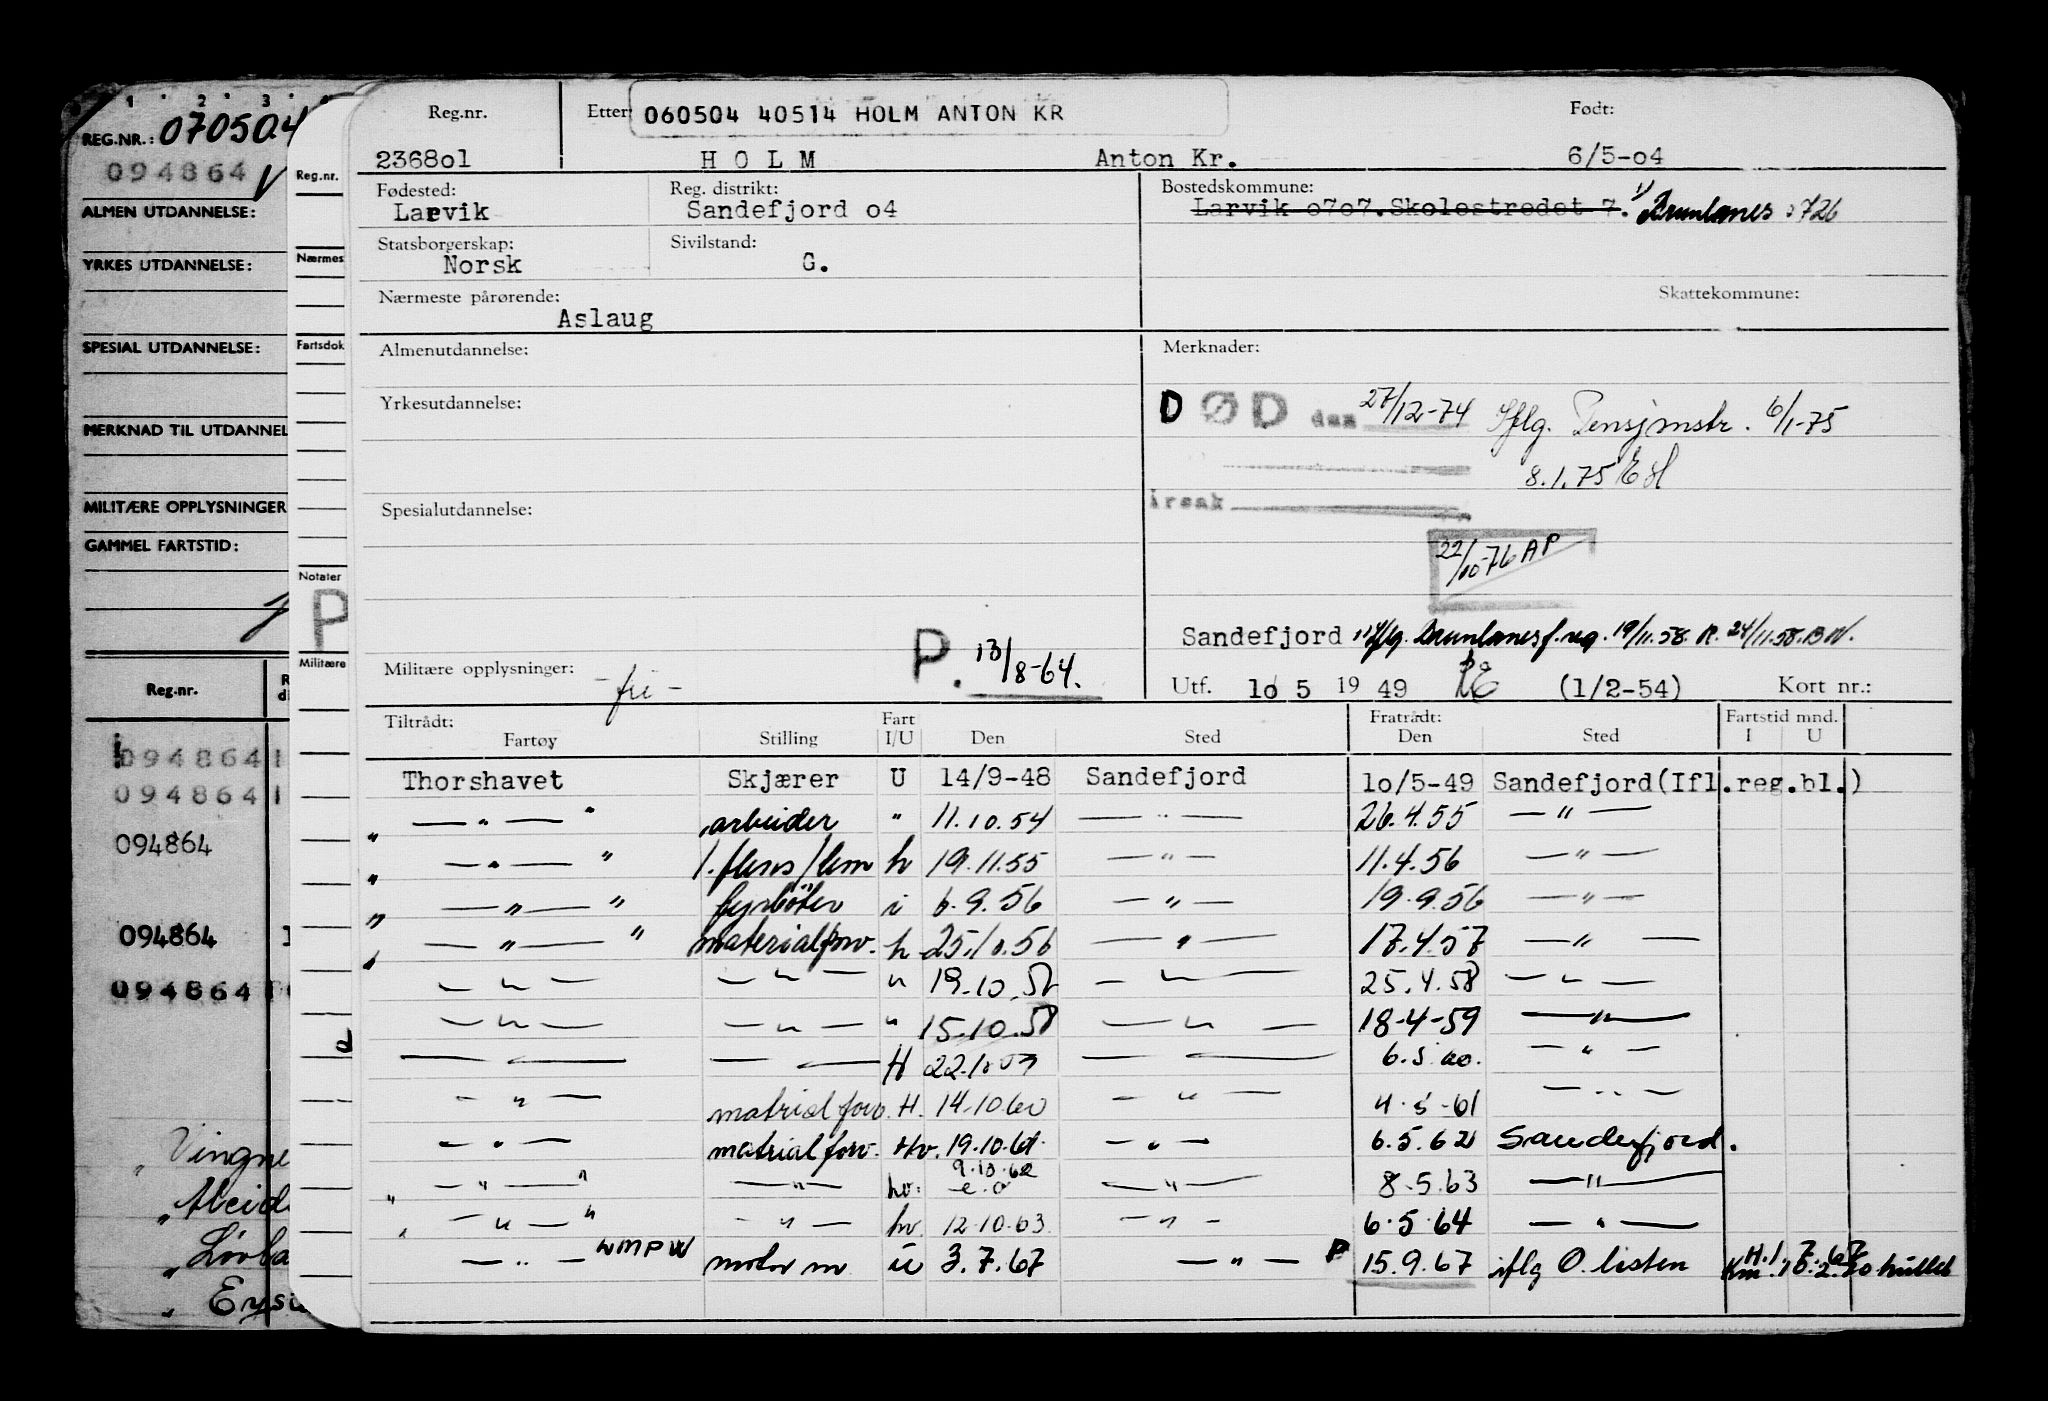 1 2 3
REG.NR.: 070504
094864
ALMEN UTDANNELSE:
YRKES UTDANNELSE:
SPESIAL UTDANNELSE:
MERKNAD TIL UTDANNEL
MILITÆRE OPPLYSNINGER
GAMMEL FARTSTID:
Reg.nr.
094864
094864
094864
094864
094864
Vingne
Reg.nr.
Nærmes
Fartsdok
Notater
P
Militære
Reg.nr. Etter 060504 40514 HOLM ANTON KR Født:
2368o1 H O L M Anton Kr. 6/5-o4
Fødested: Reg. distrikt: Bostedskommune:
Larvik Sandefjord o4 Larvik o7o7.Skolestredet 7. 1) Brunlanes 0726
Statsborgerskap: Sivilstand:
Norsk G.
Nærmeste pårørende: Skattekommune:
Aslaug
Almenutdannelse: Merknader:
Yrkesutdannelse: DØD den 27/12-74 Iflg. Pensjonstr. 6/1-75
8.1.75
Spesialutdannelse: årsak
22/10-76 AP
Sandefjord 1) Iflg. Brunlanes f.reg. 19/11.58. 24/11.58.
Militære opplysninger: -fri- P. 13/8-64.
Utf. 1o 5 19 49 (1/2-54) Kort nr.:
Tiltrådt: Fart Fratrådt: Fartstid mnd.
Fartøy Stilling I/U Den Sted Den Sted I U
Thorshavet Skjærer U 14/9-48 Sandefjord 1o/5-49 Sandefjord(Ifl.reg.bl.)
" — " — " arbeider " 11.10.54 — " — 26.4.55 — " —
" — " — " 1. flens/lem h 19.11.55 — " — 11.4.56 — " —
" — " — " fyrbøter i 6.9.56 — " — 19.9.56 — " —
" — " — " materialforv. h 25.10.56 — " — 17.4.57 — " —
— " — — " — " 19.10.57 — " — 25.4.58 — " —
— " — — " — " 15.10.58 — " — 18-4-59 — " —
— " — — " — H 22.10.59 — " — 6.5.60. — " —
— " — matrial forv. H. 14.10.60 — " — 4.5-61 — " —
— " — matrial forv. Hv. 19.10.61 — " — 6.5.62 Sandefjord.
" — " — " — " — hv. 9.10.62 — " — 8.5.63 — " —
" — " — " — " — hv. 12.10.63. — " — 6.5.64 — " —
— " — motor m u 3.7.67 — " — P 15.9.67 iflg O.listen